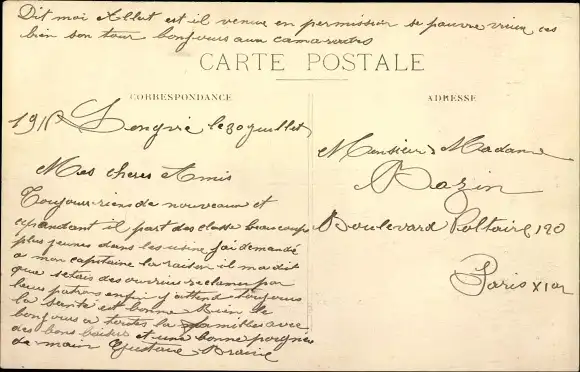 Dit moi Allot est il venue en permission se pauvre vieux ces
bien son tour bonjours aux camarades
CARTE POSTALE
CORRESPONDANCE
ADRESSE
191 Longvic le 30 Juillet
Mes cheres Amis
Toujours rien de nouveaux et
cependant il part des classe beaucoup
plus jeunes dans les usine j'ai demandé
a mon capitaine la raison il ma dit
que setais des ouvriers reclamer par
leurs patrons enfin j'attend toujours
la santé est bonne Rien le
bonjours a toutes la familles avec
des bons baiser et une bonne poignée
de main Gustave
Monsieur Madame
Bazin
Boulevard Voltaire 120
Paris XIer